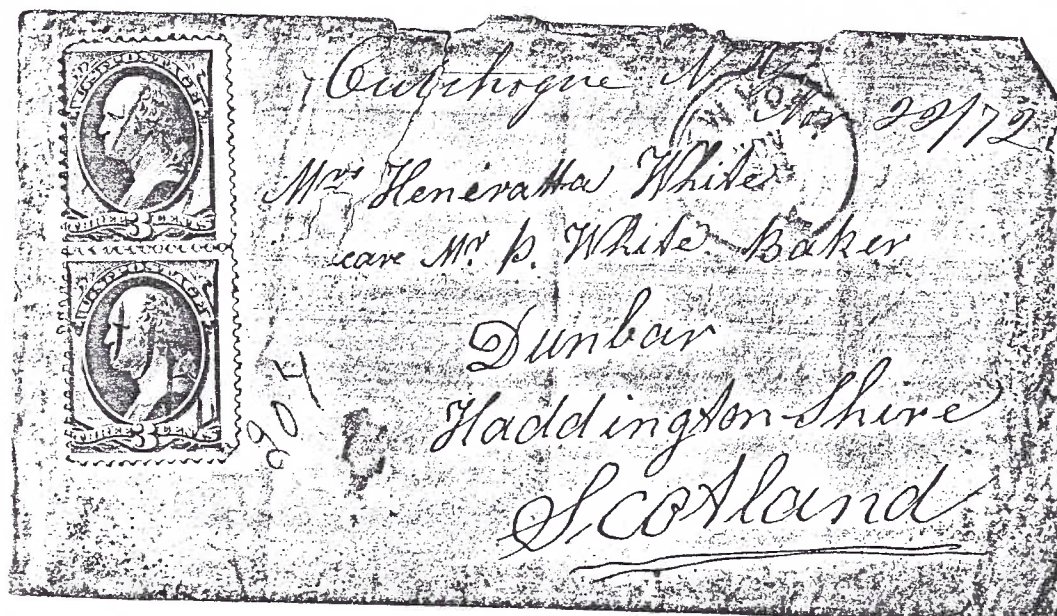 U.S. POSTAGE
THREE 3 CENTS
U.S. POSTAGE
THREE 3 CENTS
Cutchogue N.Y. Nov 22/72
W YO
Mrs Heneratta White
care Mr. P. White. Baker
Dunbar
Haddington-Shire
Scotland